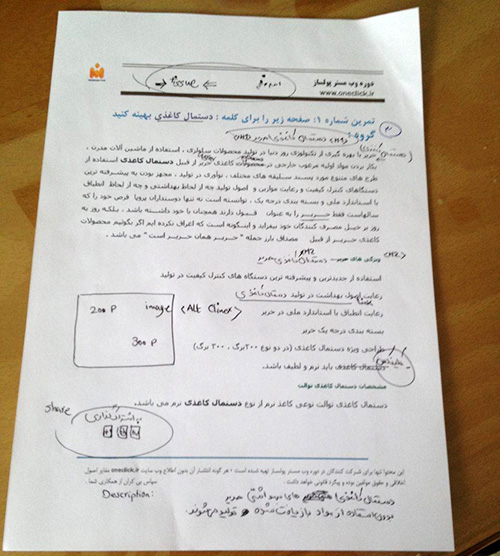 دوره وب مستر پولساز
www.oneclick.ir
tissue
تمرین شماره ۱: صفحه زیر را برای کلمه : دستمال کاغذی بهینه کنید
گروه:
حریر با بهره گیری از تکنولوژی روز دنیا در تولید محصولات سلولزی ، استفاده از ماشین آلات مدرن ،
بکار بردن مواد اولیه مرغوب خارجی در محصولات کاغذی حریر از قبیل دستمال کاغذی استفاده از
طرح های متنوع مورد پسند سلیقه های مختلف ، نوآوری در تولید ، مجهز بودن به پیشرفته ترین
دستگاهای کنترل کیفیت و رعایت موازین و اصول تولید چه از لحاظ بهداشتی و چه از لحاظ انطباق
با استاندارد ملی و بسته بندی درجه یک ، توانسته است نه تنها دوستداران پروپا قرص خود را که
سالهاست فقط حریر را به عنوان قبول دارند همچنان با خود داشته باشد ، بلکه روز به
روز بر خیل مصرف کنندگان خود بیفزاید و اینگونه است که اغراق نکرده ایم اگر بگوئیم محصولات
کاغذی حریر از قبیل مصداق بارز جمله "حریر همان حریر است" می باشد .
ویژگی های حریر دستمال کاغذی حریر
استفاده از جدیدترین و پیشرفته ترین دستگاه های کنترل کیفیت در تولید
رعایت اصول بهداشت در تولید دستمال کاغذی
رعایت انطباق با استاندارد ملی در حریر
بسته بندی درجه یک حریر
200 P image <Alt
300 P
طراحی ویژه دستمال کاغذی (در دو نوع ۲۰۰برگ ، ۳۰۰ برگ)
دستمال کاغذی باید نرم و لطیف باشد.
مشخصات دستمال کاغذی توالت
دستمال کاغذی توالت نوعی کاغذ نرم از نوع دستمال کاغذی نرم می باشد.
share
به اشتراک گذاری
این محتوا تنها برای شرکت کنندگان در دوره وب مستر پولساز تهیه شده است . هر گونه انتشار آن بدون اطلاع وب سایت oneclick.ir مغایر اصول
اخلاقی و حقوق مولفین بوده و پیگرد قانونی خواهد داشت . سپاس بی کران از همکاری شما .
Description:
دستمال کاغذی های بهداشتی حریر
با استفاده از مواد بازیافت شده تولید می شوند.